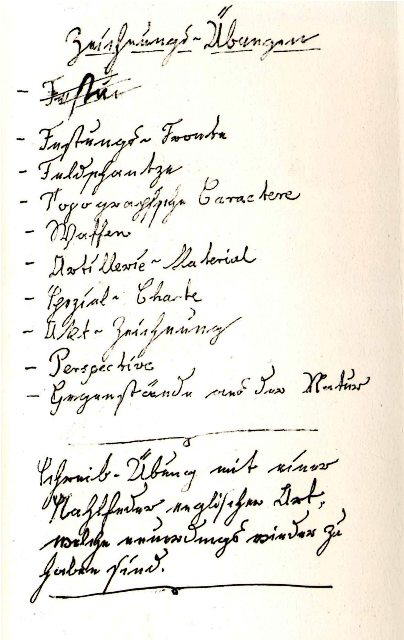 Zeichnungs-Übungen
- Festun
- Festungs-Fronte
- Feldschantze
- Topographische Caractere
- Waffen
- Artillerie-Material
- Spezial-Charte
- Akt-Zeichnung
- Perspective
- Gegenstände aus der Natur
Schreib-Übung mit einer
Stahlfeder englischer Art,
welche neuerdings wieder zu
haben sind.